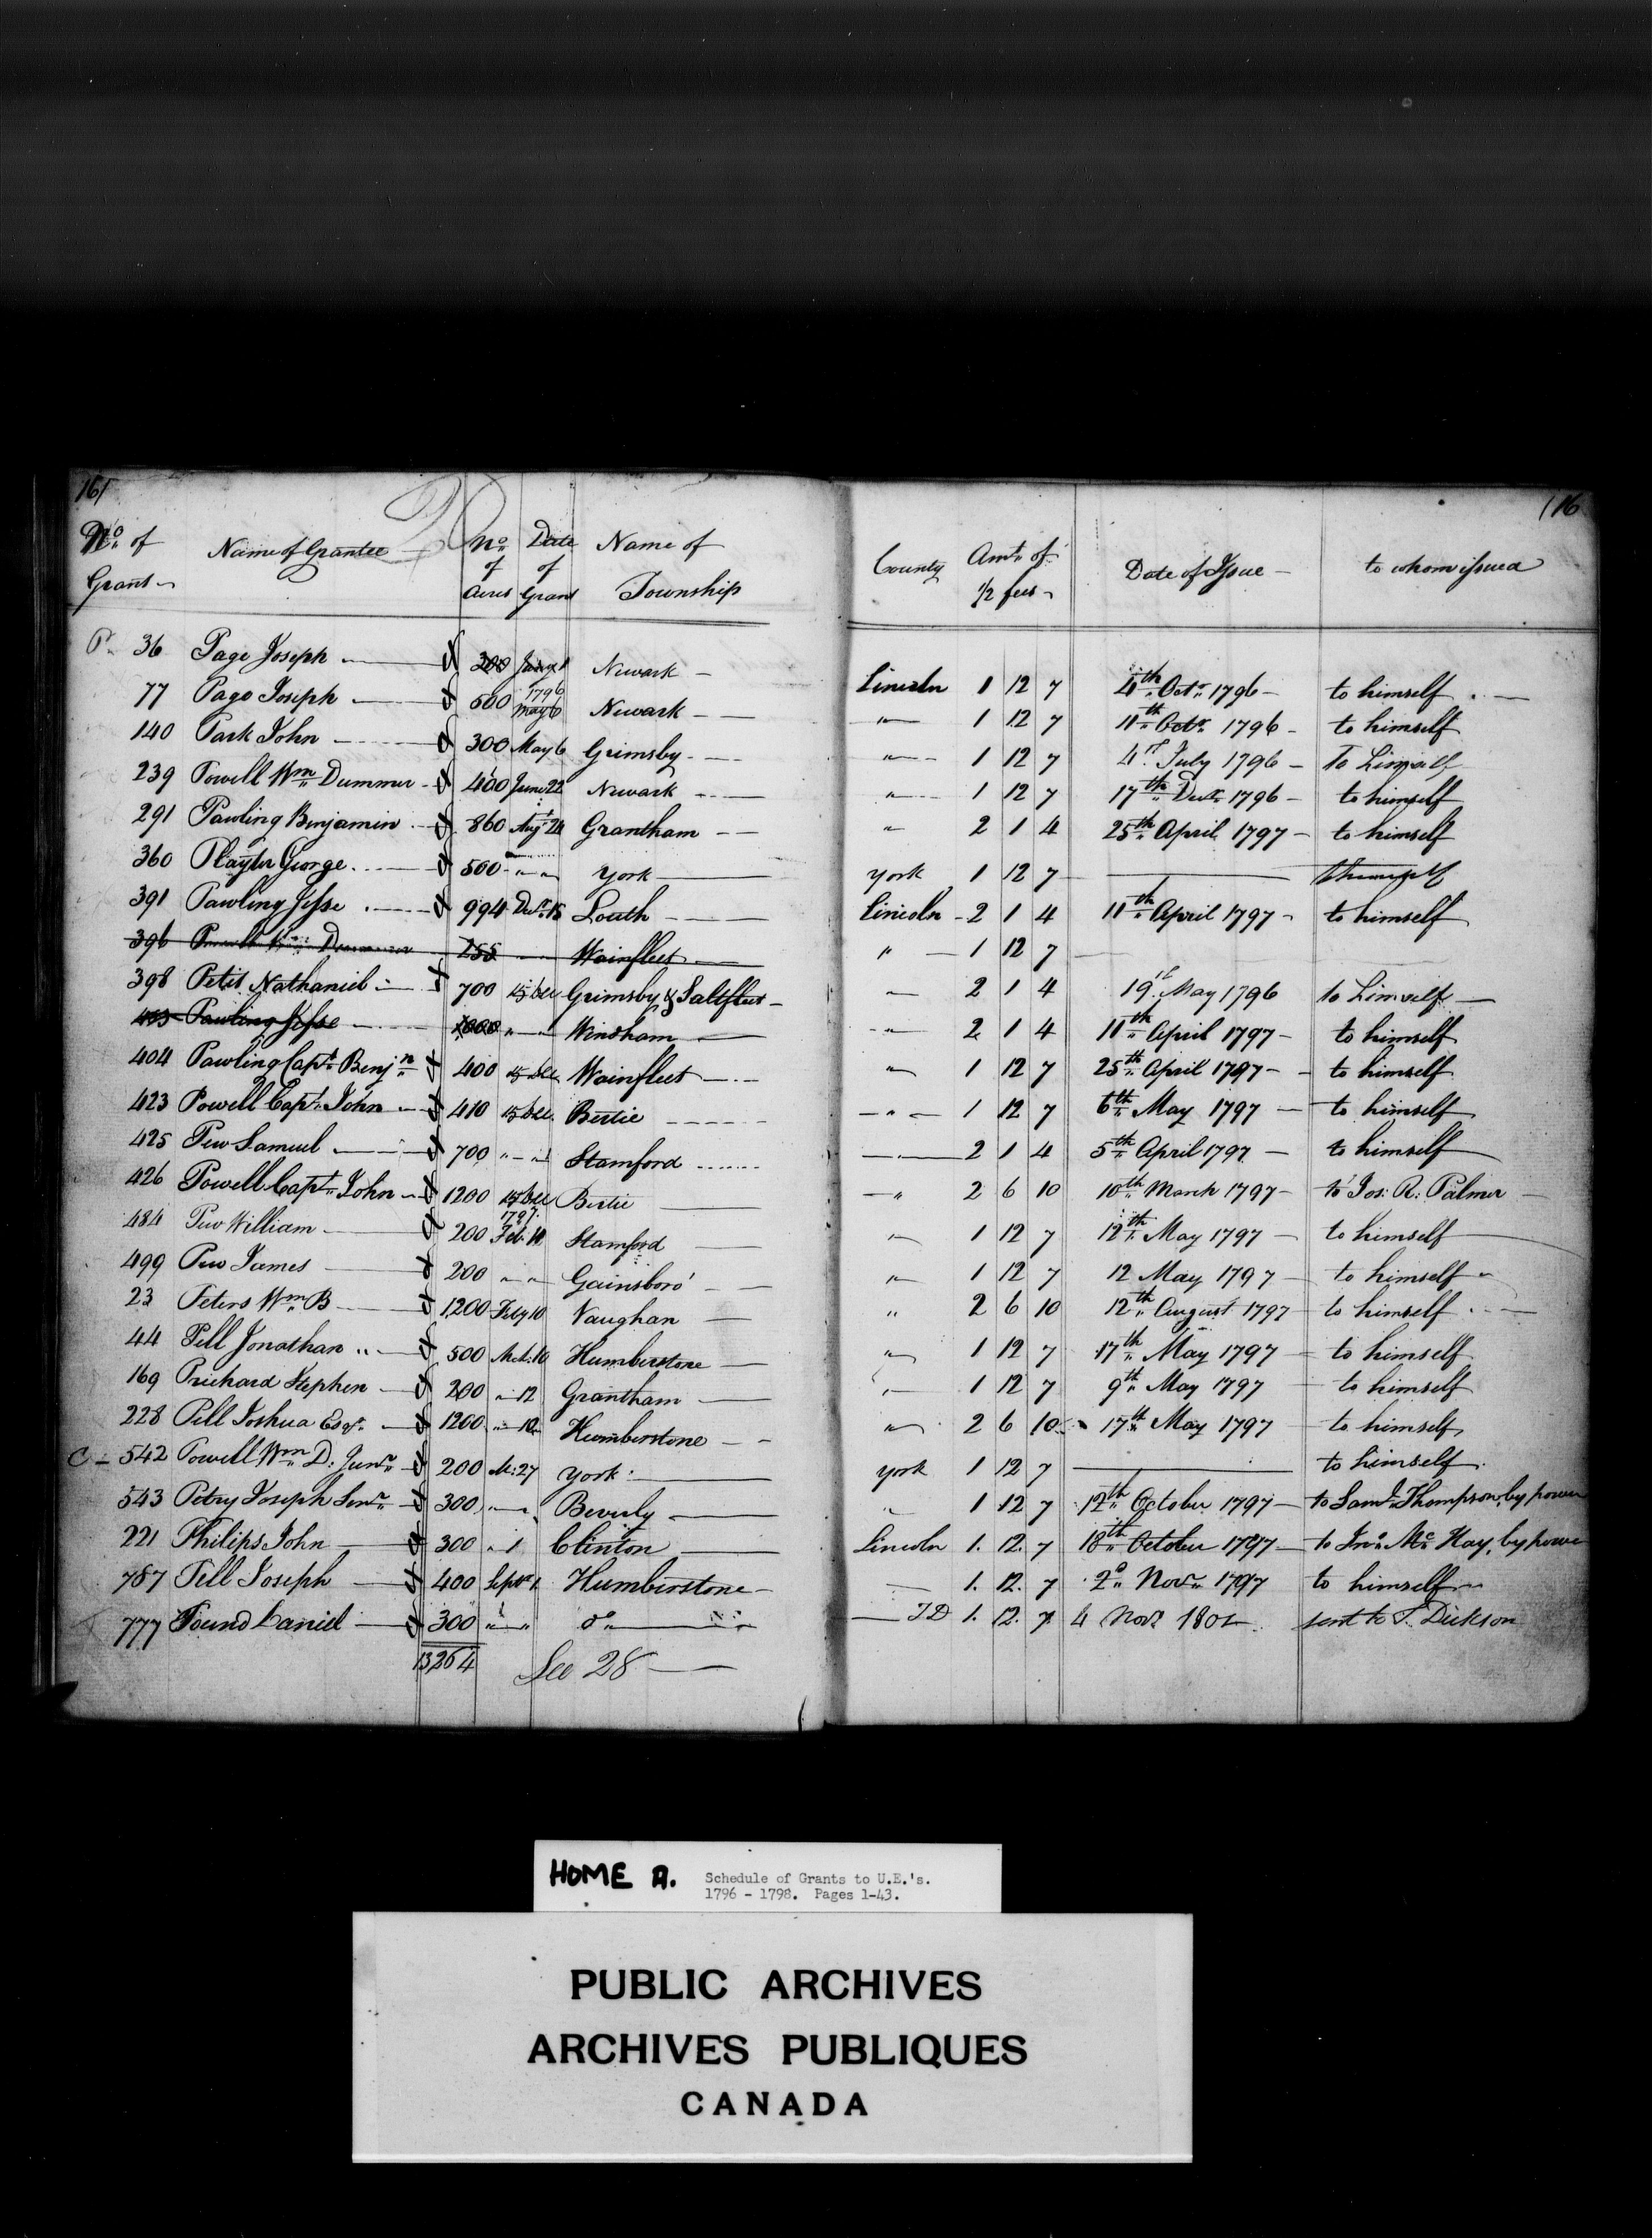 16
116
No. of Grant
Name of Grantee
No. of Acres
Date of Grant
Name of Township
County
Amt. of 1/2 fees
Date of Issue
to whom issued
P. 36 Page Joseph 200 Newark Lincoln 1 12 7 4th Octr. 1796 to himself
77 Page Joseph 500 1796 May 6 Newark " 1 12 7 11th Octr. 1796 to himself
140 Park John 300 May 6 Grimsby " 1 12 7 4 July 1796 To himself
239 Powell Wm. Dummer 400 June 22 Newark " 1 12 7 17th Decr. 1796 to himself
291 Pawling Benjamin 860 Augt 24 Grantham " 2 1 4 25th April 1797 to himself
360 Playter George 500 " " York York 1 12 7
391 Pawling Jesse 994 Decr. 15 Louth Lincoln 2 1 4 11th April 1797 to himself
396 255 Wainfleet " 1 12 7
398 Petit Nathaniel 700 15 Dec Grimsby & Saltfleet " 2 1 4 19 May 1796 to himself
403 Pawling Jesse " Windham " 2 1 4 11th April 1797 to himself
404 Pawling Capt. Benjn. 400 15 Dec Wainfleet " 1 12 7 25th April 1797 to himself
423 Powell Capt. John 410 15 Dec. Bertie " 1 12 7 6th May 1797 to himself
425 Pew Samuel 700 " " Stamford 2 1 4 5th April 1797 to himself
426 Powell Capt. John 1200 15 Dec Bertie " 2 6 10 10th March 1797 to Jos: R: Palmer
484 Pew William 200 1797. Feb. 10 Stamford " 1 12 7 12th May 1797 to himself
499 Pew James 200 " " Gainsboro' " 1 12 7 12 May 1797 to himself
23 Peters Wm. B 1200 Feby 10 Vaughan " 2 6 10 12th August 1797 to himself
44 Pell Jonathan 500 Mch: 10 Humberstone " 1 12 7 17th May 1797 to himself
169 Prichard Stephen 200 " 12 Grantham " 1 12 7 9th May 1797 to himself
228 Pell Joshua Esqr. 1200 " 10 Humberstone " 2 6 10 17th May 1797 to himself
C 542 Powell Wm. D: Junr. 200 M: 27 York York 1 12 7 to himself
543 Petry Joseph Senr. 300 " Beverly " 1 12 7 12th October 1797 to Saml. Thompson, by power
221 Philips John 300 " 1 Clinton Lincoln 1. 12. 7 18th October 1797 to Jno. Mc. Kay, by power
787 Pell Joseph 400 Septr 1 Humberstone 1. 12. 7 2d. Novr. 1797 to himself
777 Pound Daniel 300 " " do. 1. 12. 7 4 Novr. 1801 sent to T. Dickson
13,264 See 28
HOME A. Schedule of Grants to U.E.'s.
1796 - 1798. Pages 1-43.
PUBLIC ARCHIVES
ARCHIVES PUBLIQUES
CANADA